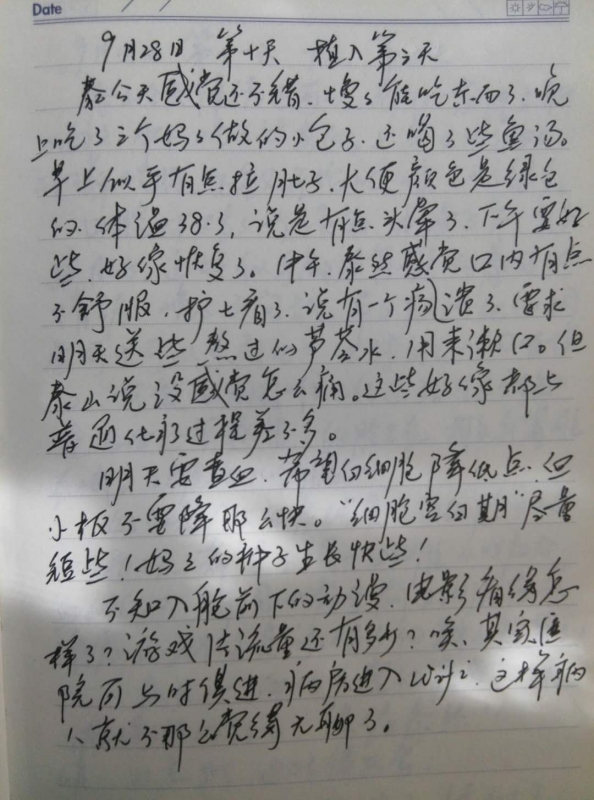 Date
9月28日 第十天 植入第二天
泰今天感觉还不错.慢慢能吃东西了.晚
上吃了三个妈妈做的小包子.还喝了些鱼汤。
早上似乎有点拉肚子.大便颜色是绿色
的.体温38.3,说是有点头晕了.下午要好
些.好像恢复了。中午.泰然感觉口内有点
不舒服.护士看了.说有一个病溃了.要求
明天送些熬过的芦荟水.用来漱口。但
泰山说没感觉怎么痛。这些好像都与
普通化疗过程差不多。
明天要查血.希望白细胞降低点.但
小板不要降那么快。"细胞空白期"尽量
短些!妈妈的种子生长快些!
不知入舱前下的动漫.电影看得怎
样了?游戏 流量还有多少?唉.其实医
院可与时俱进.病房进入wifi.这样病
人就不那么觉得无聊了。